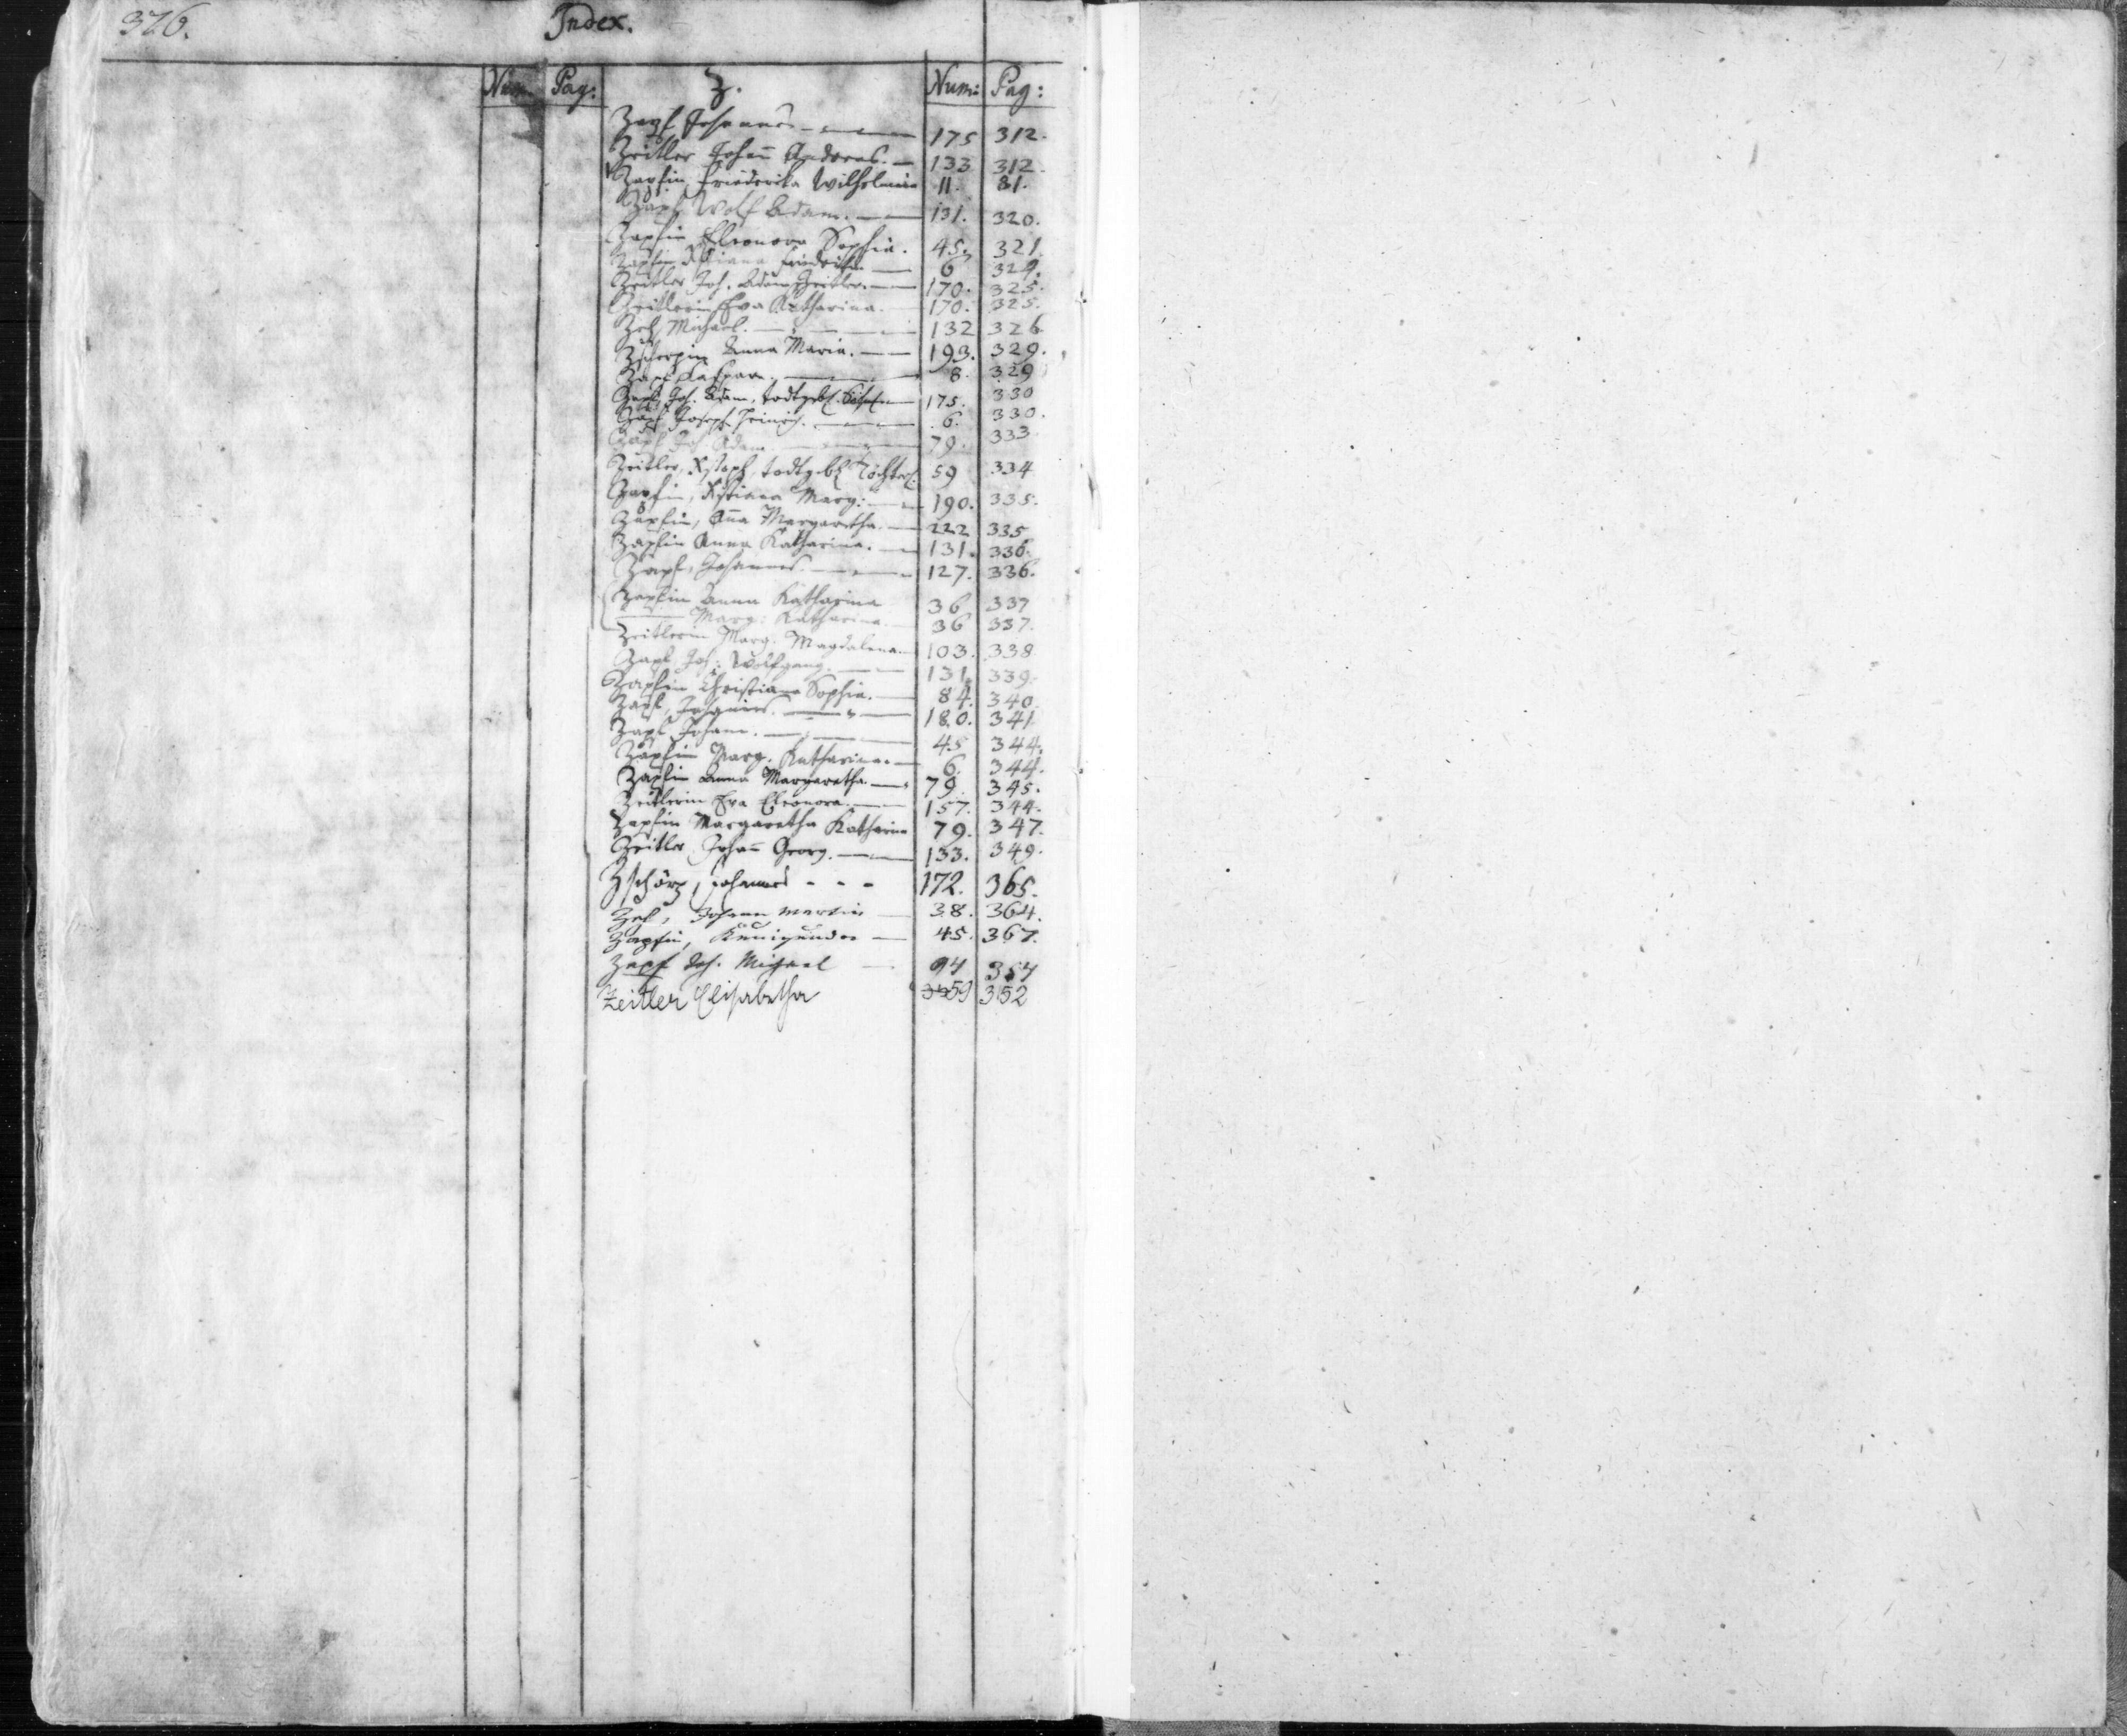 376.
Index.
Num. Pag: Z. Num: Pag:
Zapf Johannes 175 312.
Zeitler Johann̅ Andreas. 133 312.
Zapfin Friederika Wilhelmina 11. 81.
Zapf Wolf Adam. 131. 320.
Zapfin Eleonora Sophia. 45. 321.
Zapfin Xstiana Friederika. 6 324.
Zeitler Joh. Adam Zeitler. 170. 325.
Zeitlerin Eva Katharina. 170. 325.
Zeh, Michael. 132 326
Zscherpin Anna Maria. 193. 329.
Zapf Kaspar. 8. 329
Zapf, Joh. Adam, todtgeb. Söhnl. 175. 330
Zapf Joseph Heinrich. 6. 330.
Zapf Joh. Adam. 79. 333.
Zeitler, Xstoph, todtgeb. Töchterl. 59 334
Zapfin, Xstiana Marg: 190. 335.
Zapfin, Ana Margaretha. 222 335.
Zapfin Anna Katharina. 131. 336.
Zapf, Johannes. 127. 336.
Zapfin Anna Katharina 36 337
Marg: Katharina. 36 337.
Zeitlerin Marg. Magdalena. 103. 338
Zapf, Joh: Wolfgang. 131. 339.
Zapfin Christiana Sophia. 84. 340.
Zapf, Johannes. 180. 341.
Zapf Johann. 45 344.
Zapfin Marg. Katharina. 6. 344.
Zapfin Anna Margaretha 79. 345.
Zeitlerin Eva Eleonora. 157. 344.
Zapfin Margaretha Katharina 79. 347.
Zeitler Johann̅ Georg. 133. 349.
Zschörp, Johannes - - - 172. 365.
Zeh, Johann Martin 38. 364.
Zapfin, Kunigunda 45. 367.
Zapf Joh. Michael 94 357
Zeitler Elisabetha 59 352